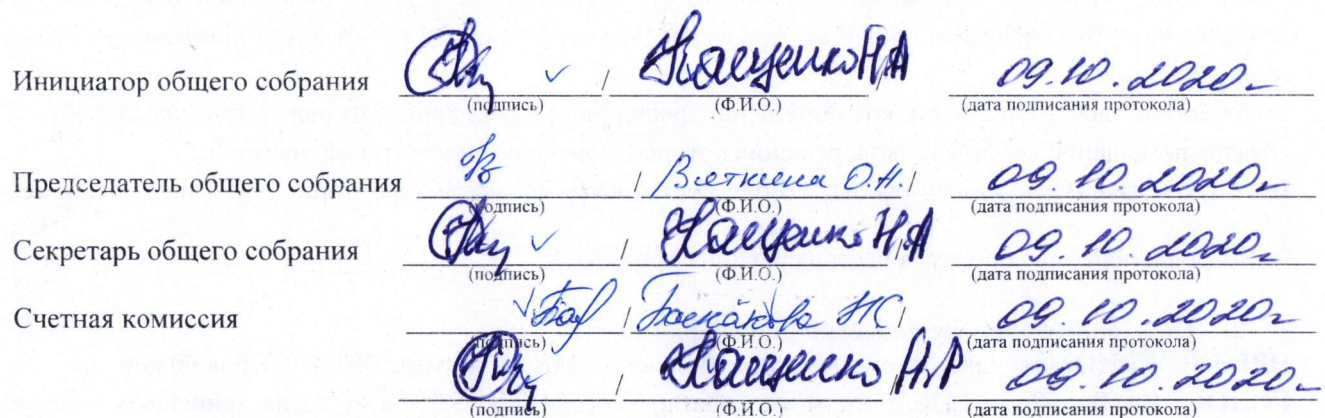 Инициатор общего собрания / Кащенко Н.А / 09.10.2020г
(подпись) (Ф.И.О.) (дата подписания протокола)
Председатель общего собрания / Вяткина О.Н. / 09.10.2020г
(подпись) (Ф.И.О.) (дата подписания протокола)
Секретарь общего собрания / Кащенко Н.А 09.10.2020г
(подпись) (Ф.И.О.) (дата подписания протокола)
Счетная комиссия / НС / 09.10.2020г
(подпись) (Ф.И.О.) (дата подписания протокола)
/ Кащенко Н.А 09.10.2020г
(подпись) (Ф.И.О.) (дата подписания протокола)